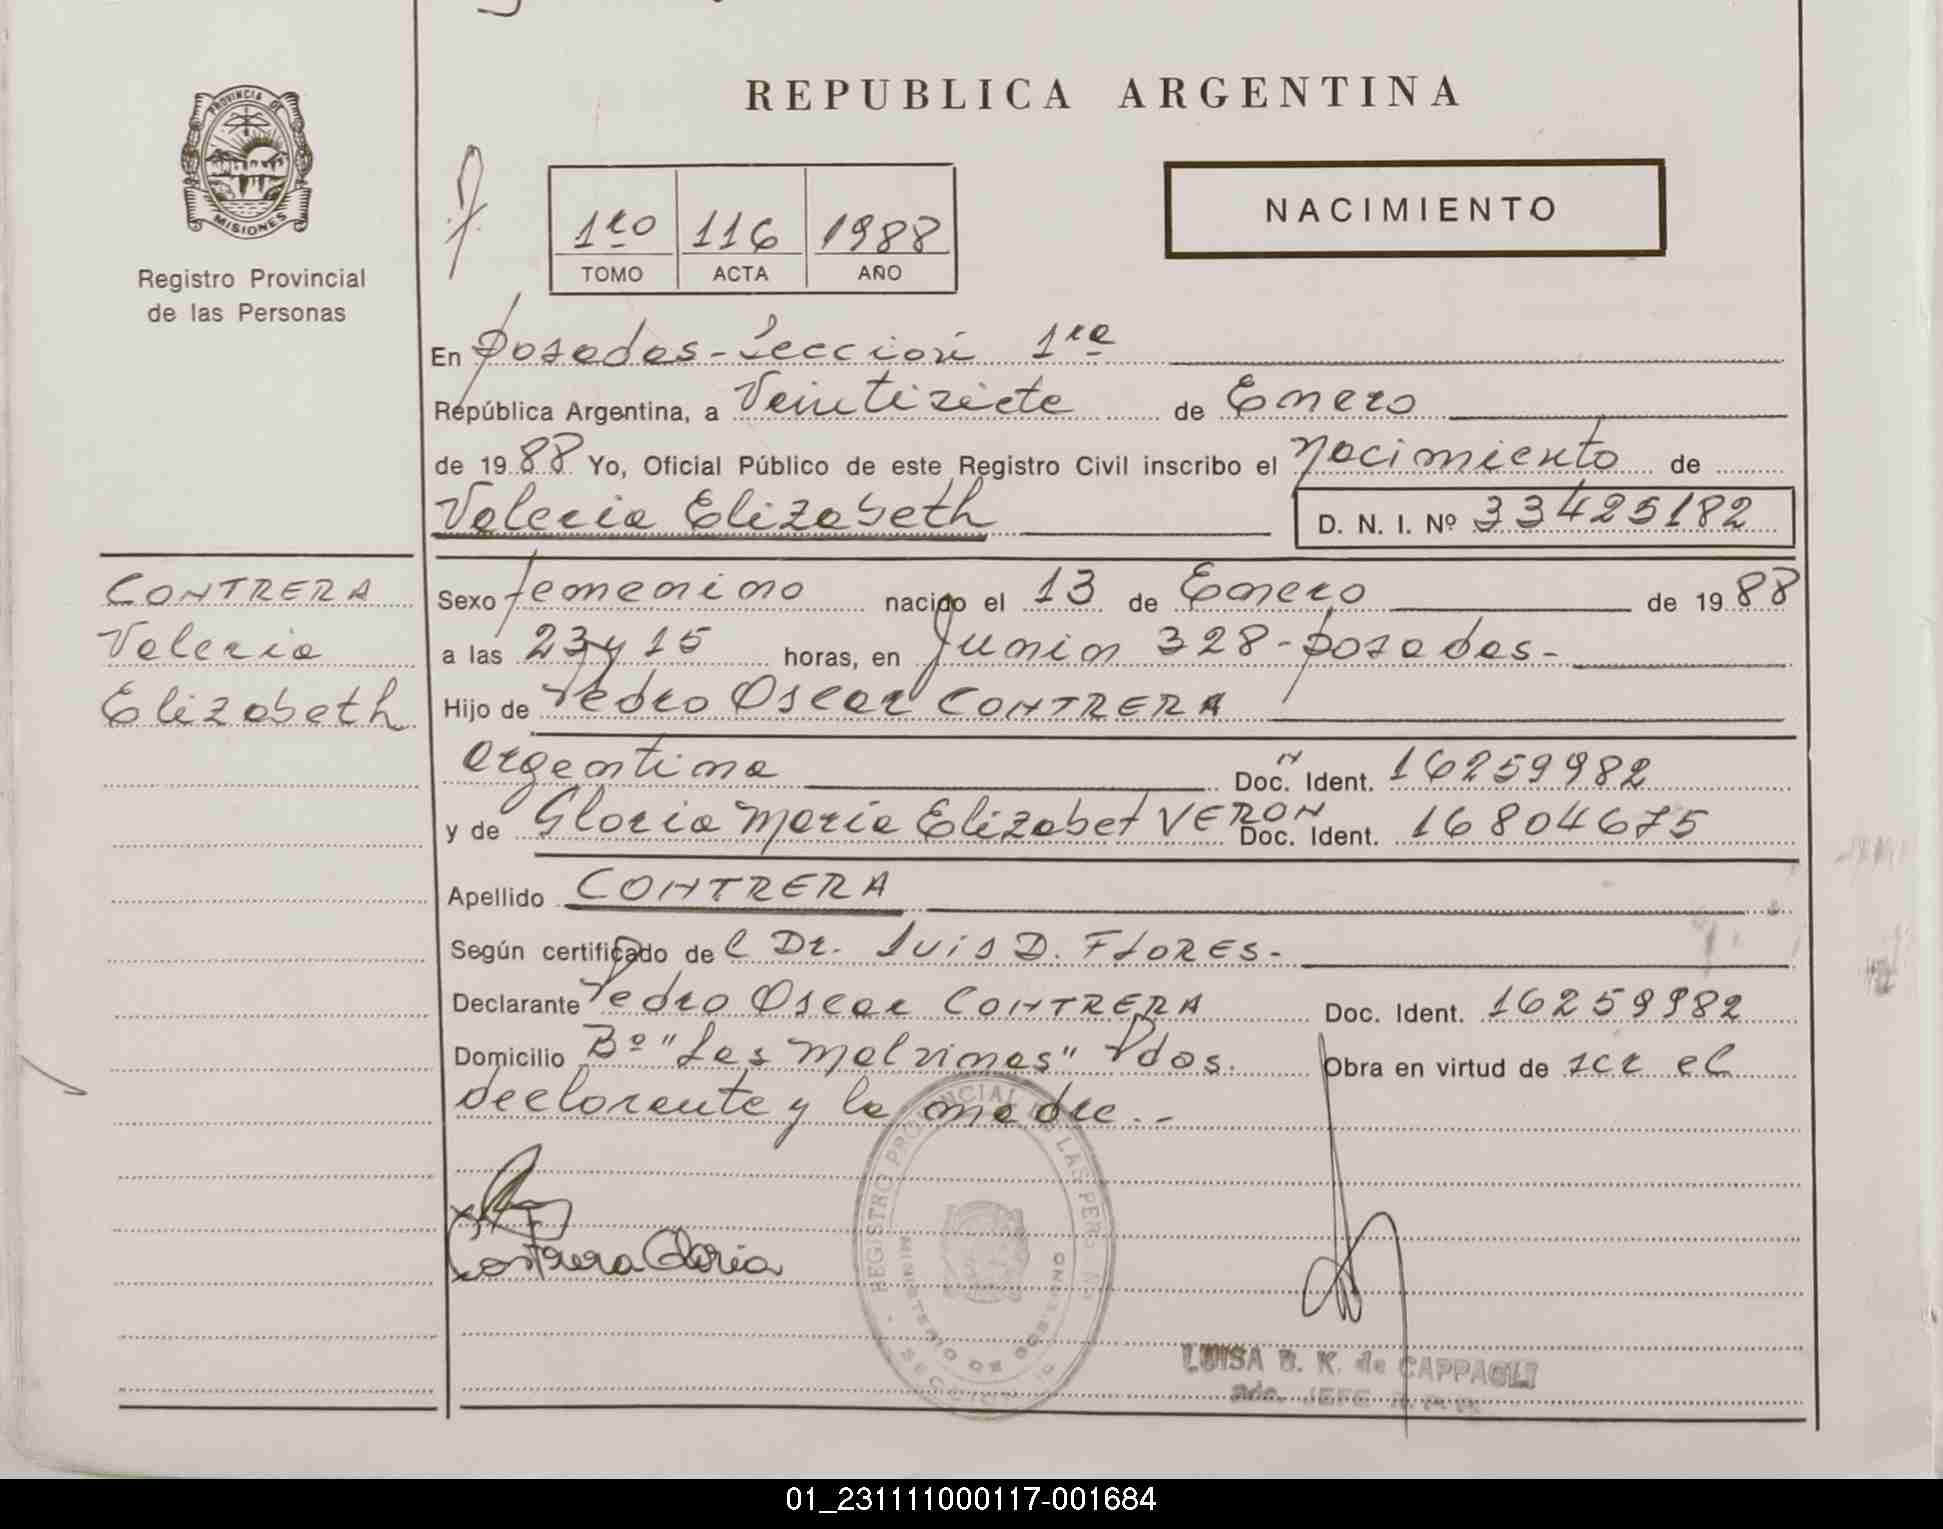 REPUBLICA ARGENTINA
PROVINCIA DE
MISIONES
Registro Provincial
de las Personas
1ro 116 1988
TOMO ACTA AÑO
NACIMIENTO
En Posadas - Sección 1ra
República Argentina, a Veintisiete de Enero
de 1988 Yo, Oficial Público de este Registro Civil inscribo el Nacimiento de
Valeria Elizabeth D. N. I. Nº 33425182
CONTRERA
Valeria
Elizabeth
Sexo femenino nacido el 13 de Enero de 1988
a las 23 y 15 horas, en Junin 328 - Posadas -
Hijo de Pedro Oscar CONTRERA
argentina Doc. Ident. 16259982
y de Gloria Maria Elizabet VERON Doc. Ident. 16804675
Apellido CONTRERA
Según certificado del Dr. Luis D. FLORES -
Declarante Pedro Oscar CONTRERA Doc. Ident. 16259982
Domicilio Bº "Las Malvinas" Pdas. Obra en virtud de ser el
declarante y la madre. -
REGISTRO PROVINCIAL DE LAS PERS
MINISTERIO DE GOBIERNO
SECCION
Contrera Gloria
LUISA B. K. de CAPPAGLI
JEFE
01_231111000117-001684